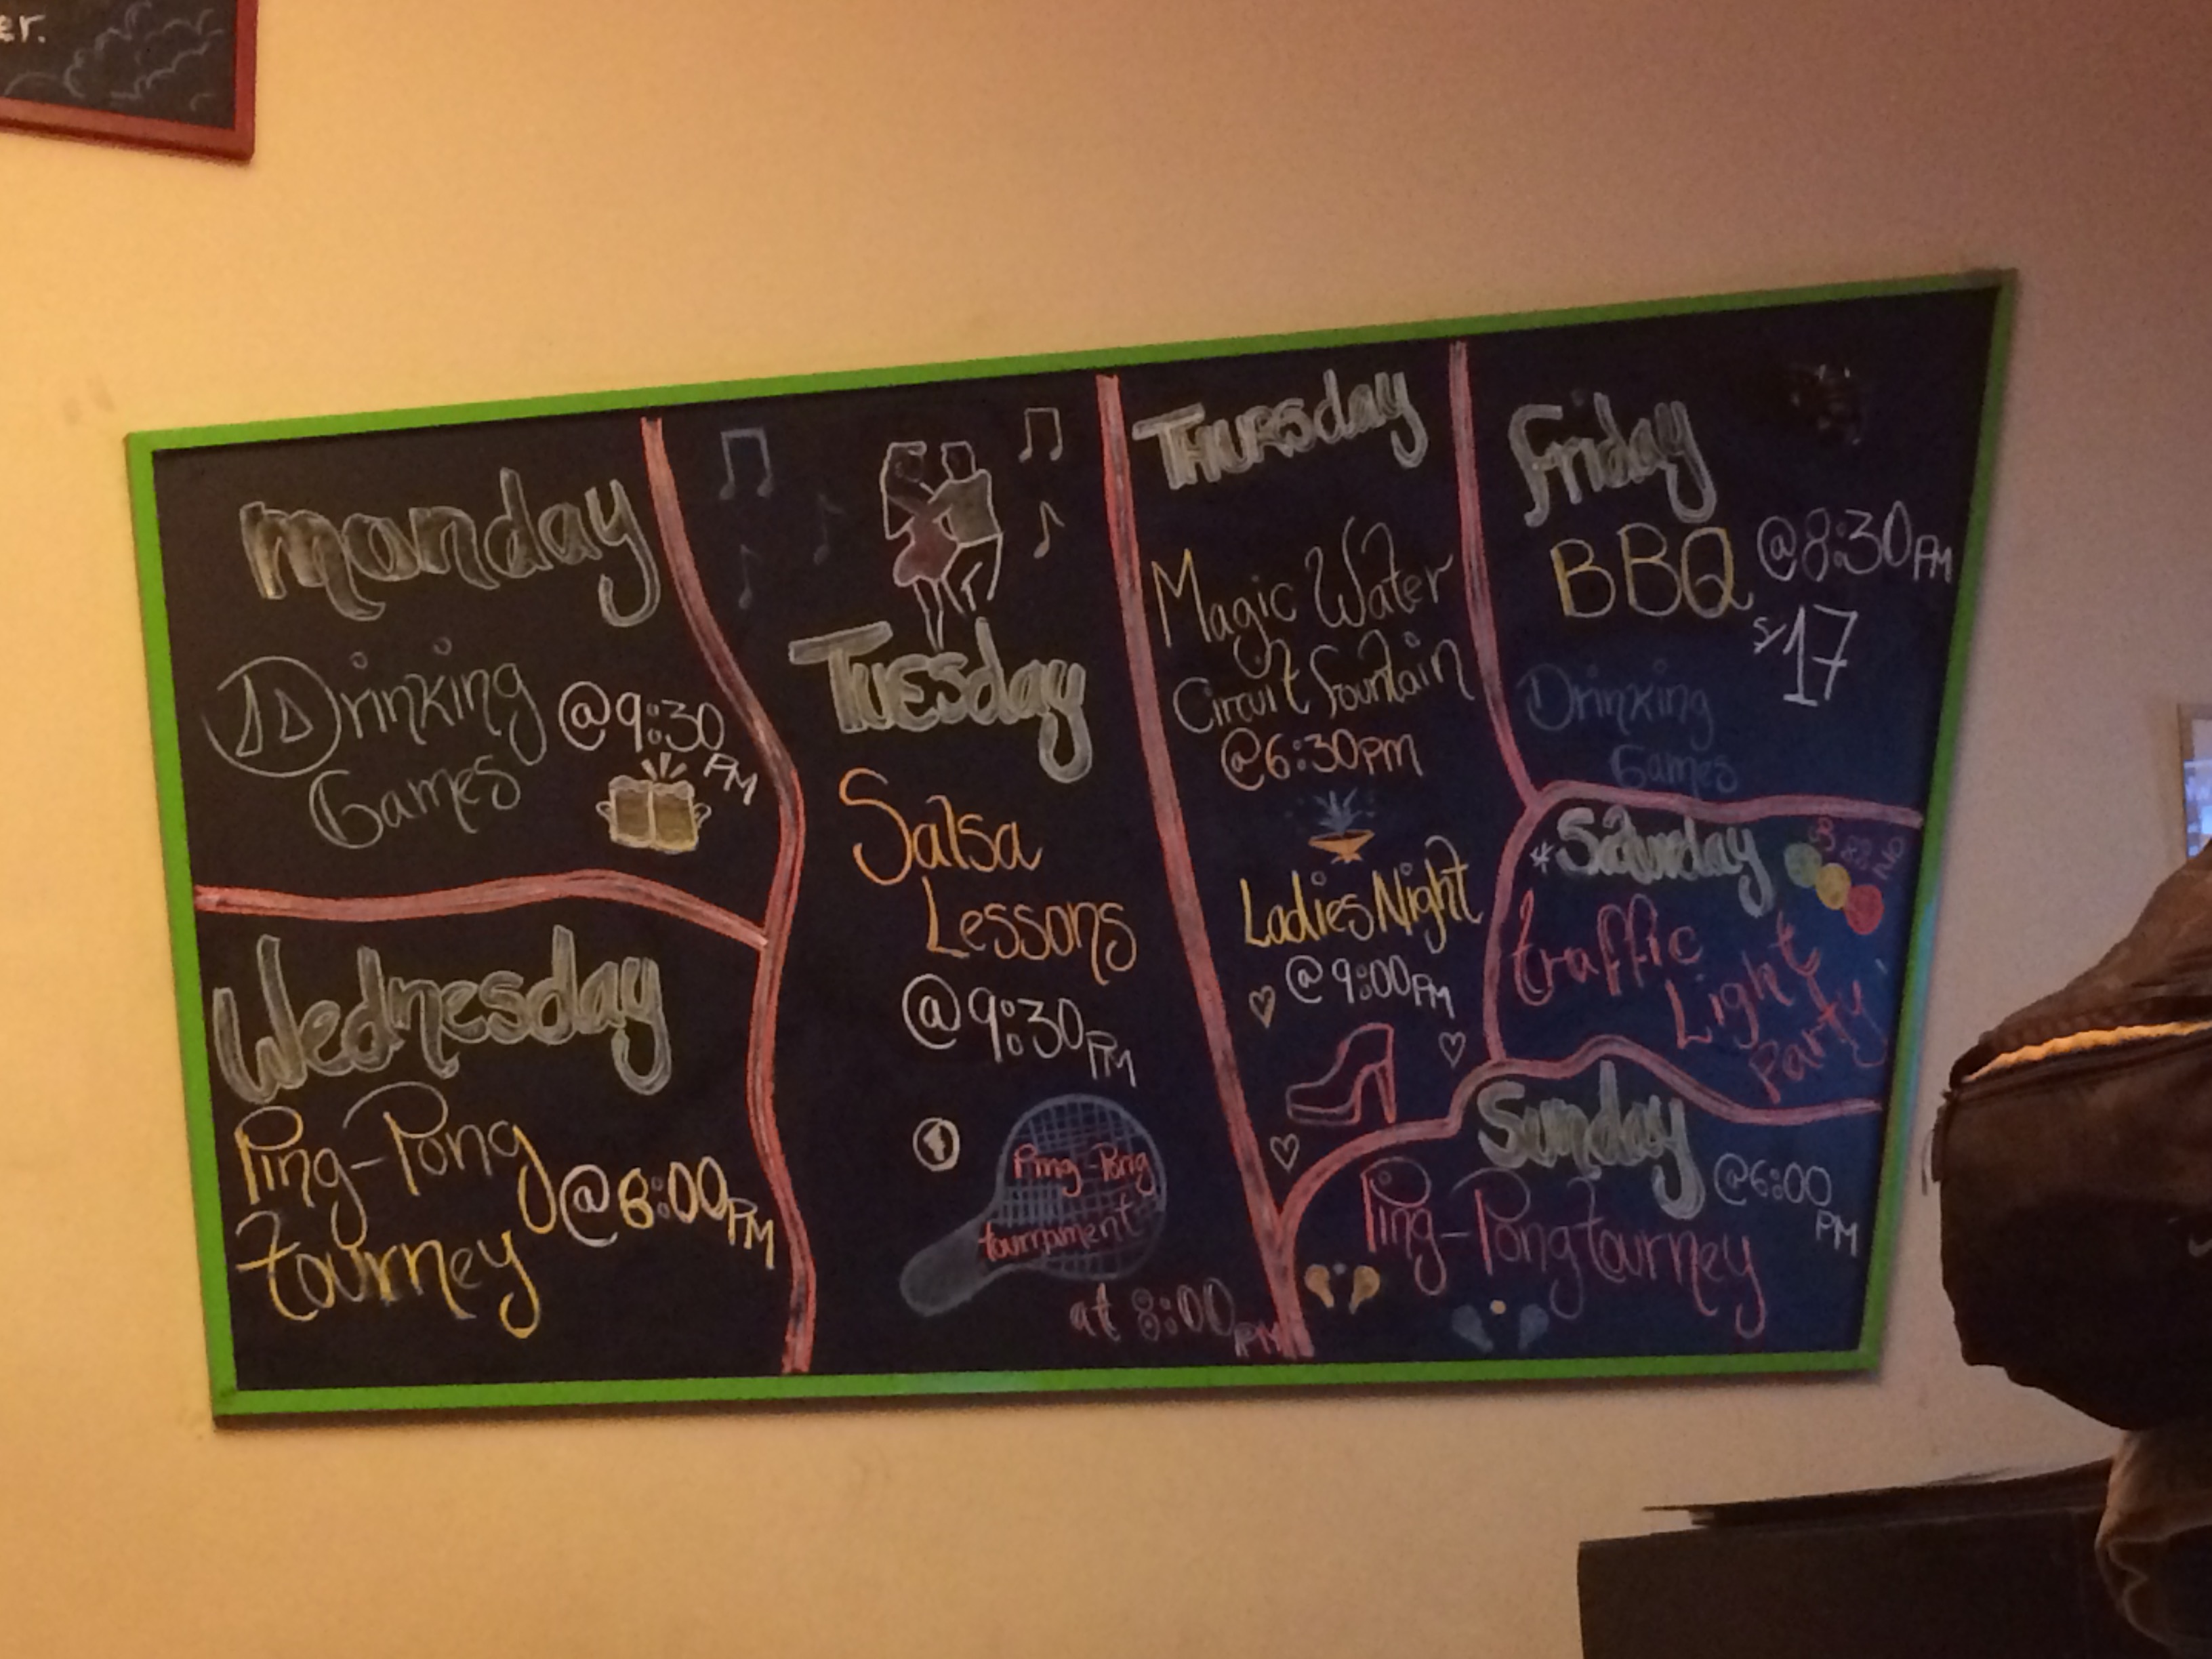 er.
monday
Drinking
Games
@9:30
PM
Wednesday
Ping-Pong
tourney
@8:00PM
Tuesday
Salsa
Lessons
@9:30PM
Ping-Pong
tournament
at 8:00PM
THURSday
Magic Water
Circuit fountain
@6:30PM
Ladies Night
@9:00PM
Friday
BBQ @8:30PM
S/17
Drinking
Games
*Saturday
traffic
Light
Party
Sunday
@6:00
PM
Ping-Pong tourney